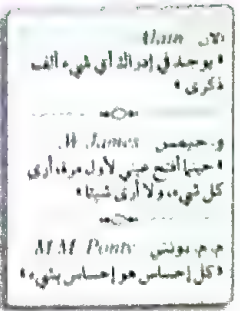 آلان Alain
« يوجد في إدراك أي شيء ألف
ذكرى »
و. جيمس W. James
« حينما أفتح عيني لأول مرة، أرى
كل شيء، ولا أرى شيئا »
م. م. بونتي M.M. Ponty
« كل إحساس هو إحساس بشيء »